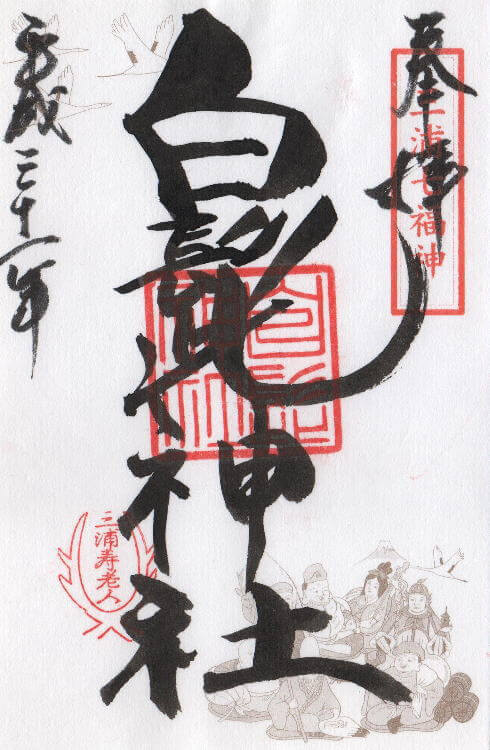 奉拝
三浦七福神
白髭神社
三浦寿老人
平成三十一年